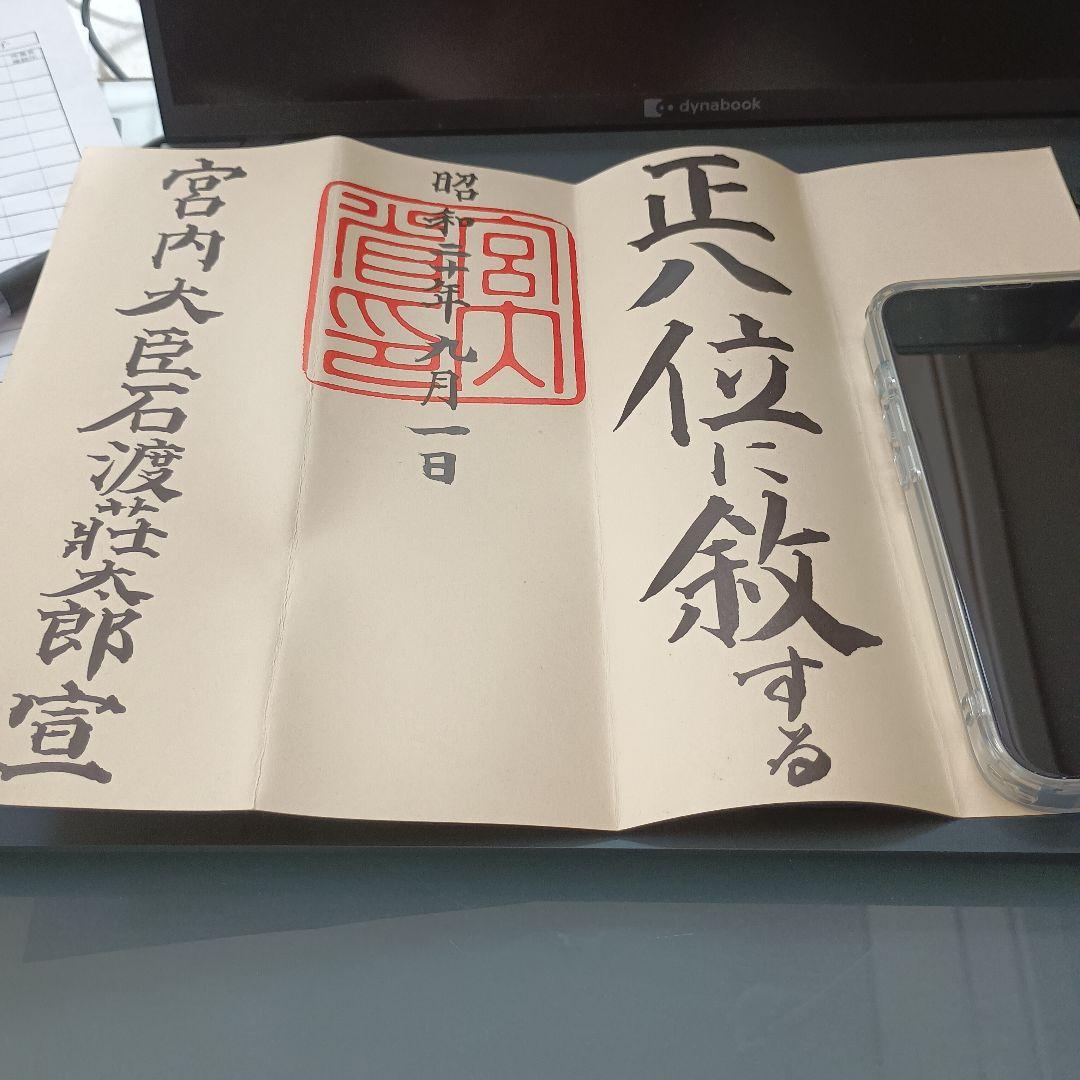 正八位に敘する
昭和二十年九月一日
宮内大臣石渡莊太郎宣
宮内省印
dynabook